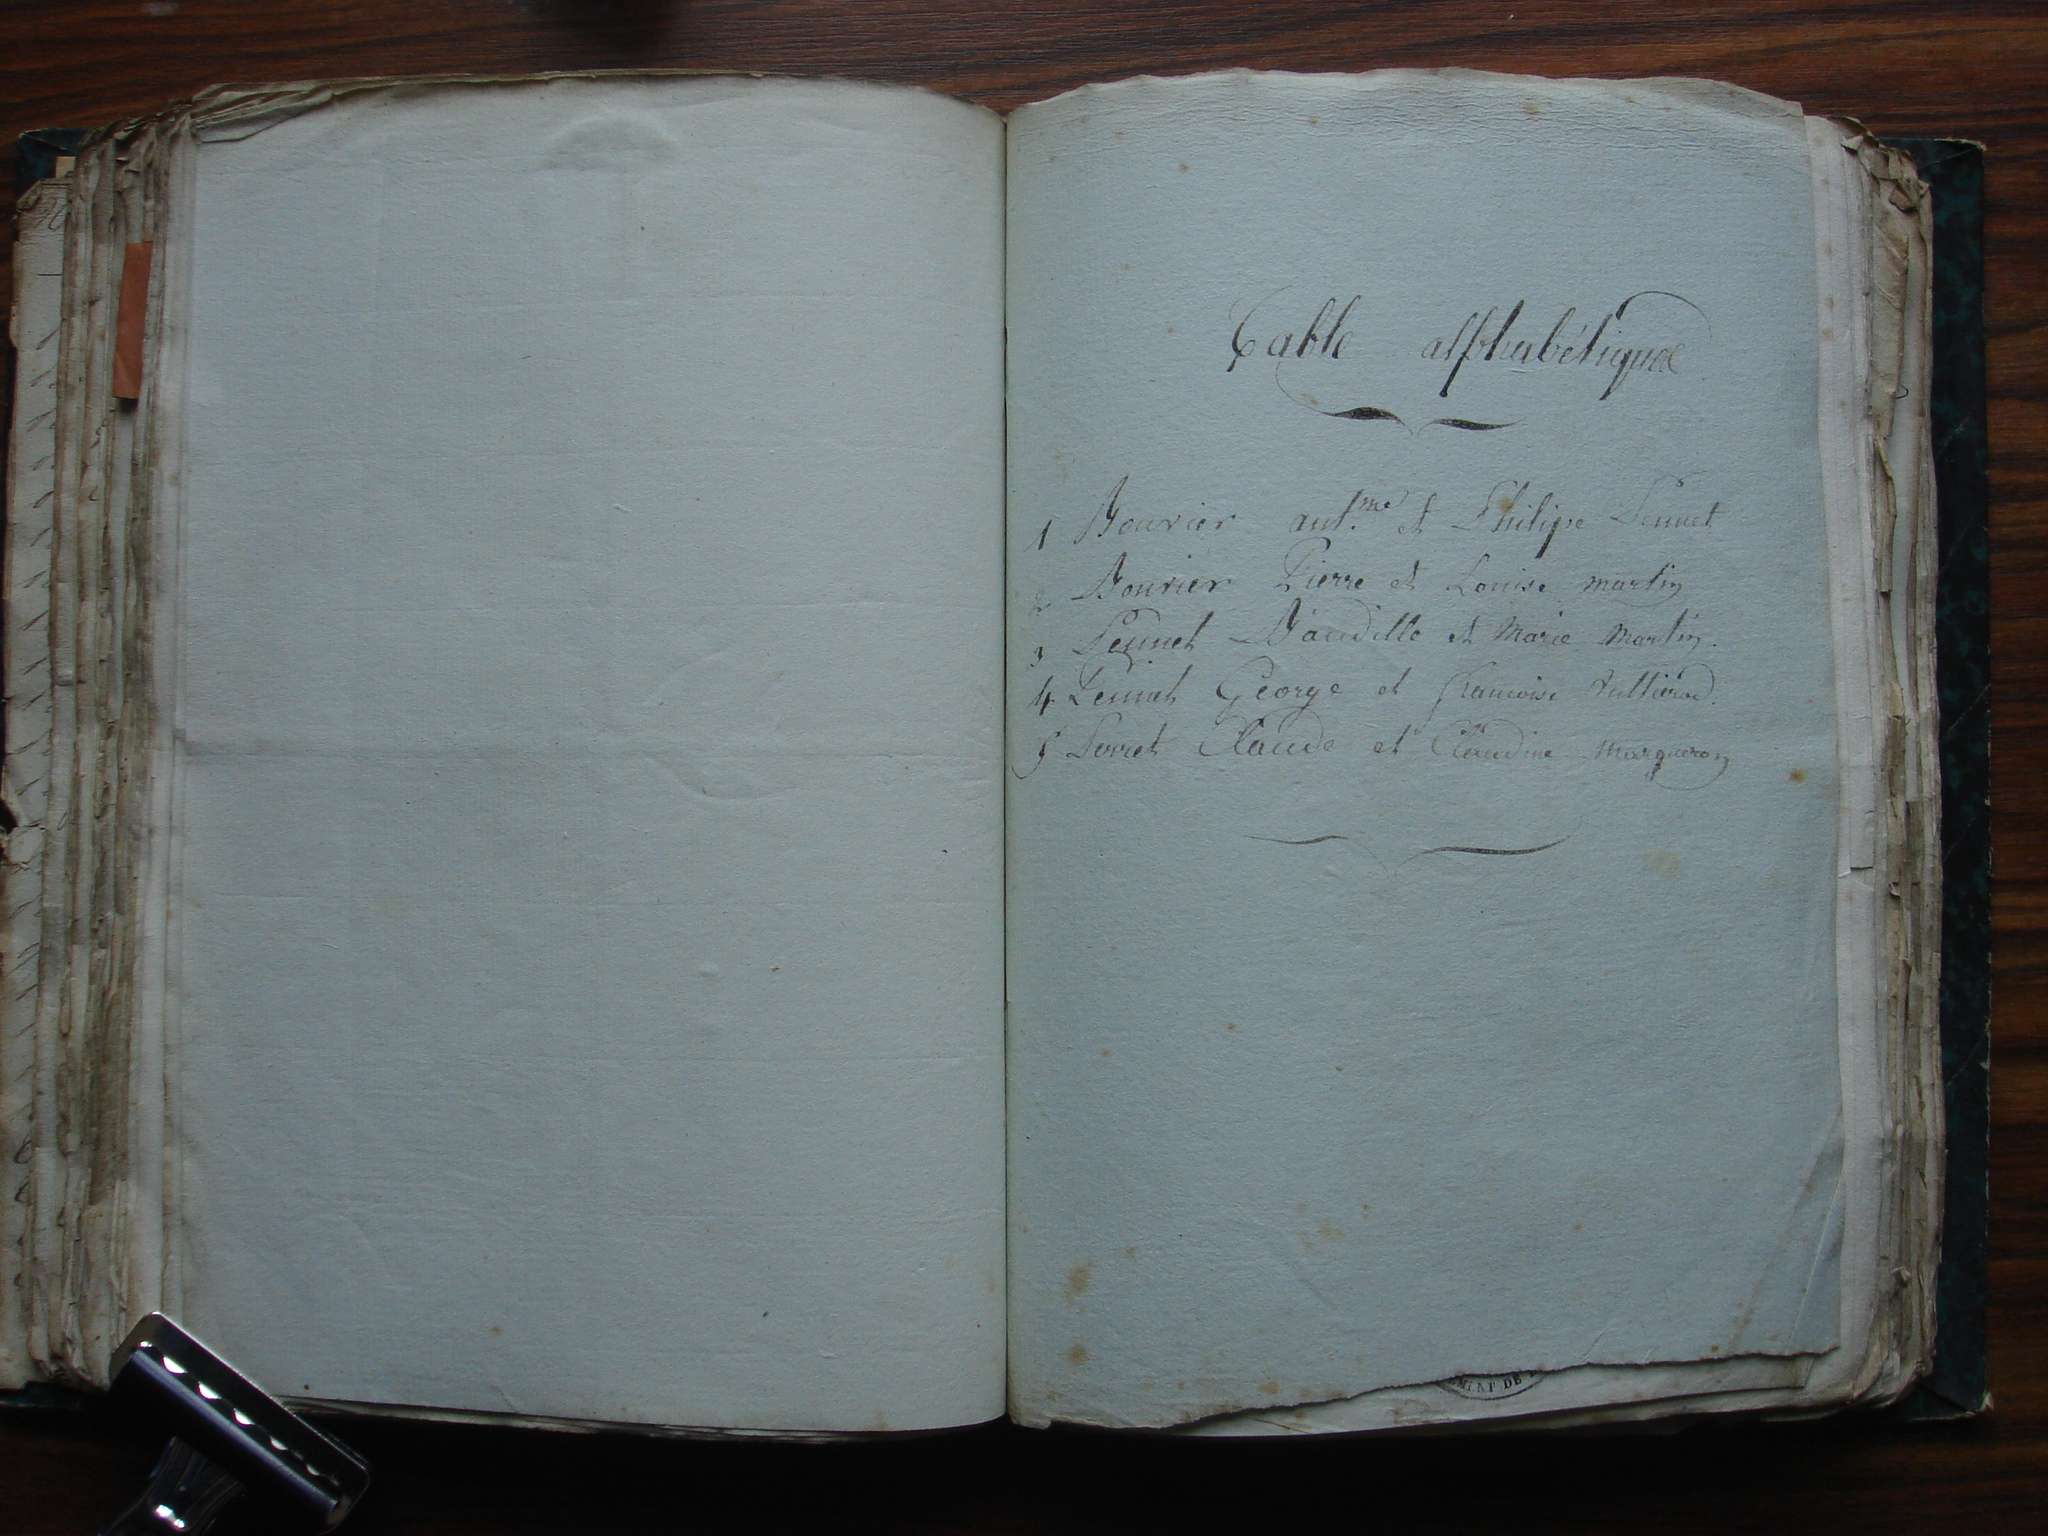 Table alphabétique
1 Bouvier ant.me et Philipe Pennet
2 Bouvier Pierre et Louise martin
3 Pennet Baudille et Marie Martin.
4 Pennet George et francoise
5 Perret Claude et Claudine Margueron